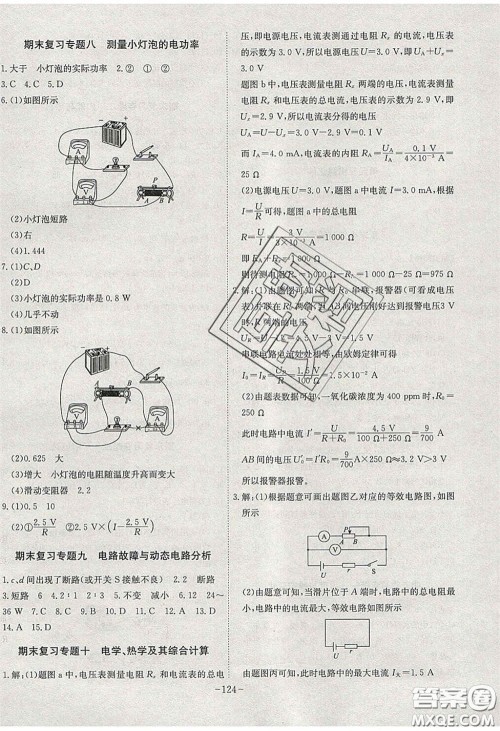 期末复习专题八 测量小灯泡的电功率
1.大于 小灯泡的实际功率 2.② ① ②
3.C 4.C 5.C
6.(1)如图所示
(2)小灯泡短路
(3)右
(4)1.444
7.(1)C、D
(2)D
(3)小灯泡的实际功率是 0.8 W
(4)几乎不动
8.(1)如图所示
(2)0.625 大
(3)增大 小灯泡的电阻随温度升高而变大
(4)滑动变阻器
9.(1)0.5 10
(2)①2.5 V/R ②2.5 V×(I-2.5 V/R)
期末复习专题九 电路故障与动态电路分析
1.c、d间出现了断路(或开关 S 接触不良) 2.2 断路
3.短路 6 4.2∶1 3∶2 5.不变 减小 6.24~
36 W 7.C 8.D 9.D 10.D 11.D 12.C 13.D
14.A 15.D
期末复习专题十 电学、热学及其综合计算
1.解:(1)题图 a 中,电压表测电阻 Rx 和电流表的总电
压,即电源电压,电流表测电阻 Rx 的电流,电压表
的示数为 3.0 V,所以电源电压 U=3.0 V,即 UA+Ux=
3.0 V
题图 b 中,电压表测电阻 Rx 两端的电压,电流表测
电阻 Rx 和电压表的总电流,电压表的示数为 2.9 V,即
Ux=2.9 V,所以电流表分得的电压
UA=U-Ux=3.0 V-2.9 V=0.1 V
而 IA=4.0 mA,电流表的内阻 RA=UA/IA=0.1 V/4×10⁻³ A=
25 Ω
(2)电源电压 U=3.0 V,题图 a 中电流 I=3 mA,根据
I=U/R可得,题图 a 中的总电阻
R=U/I=3 V/3×10⁻³ A=1 000 Ω
即 Rx+RA=1 000 Ω
则待测电阻 Rx=R-RA=1 000 Ω-25 Ω=975 Ω
UR=U-U0=4.5 V-3 V=1.5 V
串联电路电流处处相等,由欧姆定律可得
(2)由题表数据可知,一氧化碳浓度为 400 ppm 时,R0=
250 Ω
此时电路中电流 I′=U/R+R0=4.5 V/100 Ω+250 Ω=9/700 A
AB间的电压 U0′=I′R0=9/700 A×250 Ω≈3.2 V>3 V
所以报警器报警。
3.解:(1)根据题意可画出题图乙对应的等效电路图,如
图所示
(2)由题意可知,当滑片位于 A 端时,电路中的总电阻
最小,电路中的电流最大,此时的等效电路图如图所示
由题图丙可知,此时电路中的最大电流 IA=1.5 A
-124-
答案圈
MXQE.COM